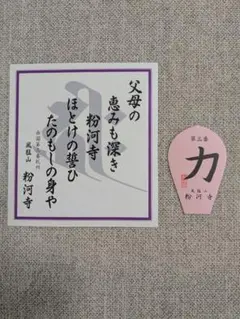 父母の
恵みも深き
粉河寺
ほとけの誓ひ
たのもしの身や
西国第三番札所
風猛山
粉河寺
第三番
力
風猛山
粉河寺